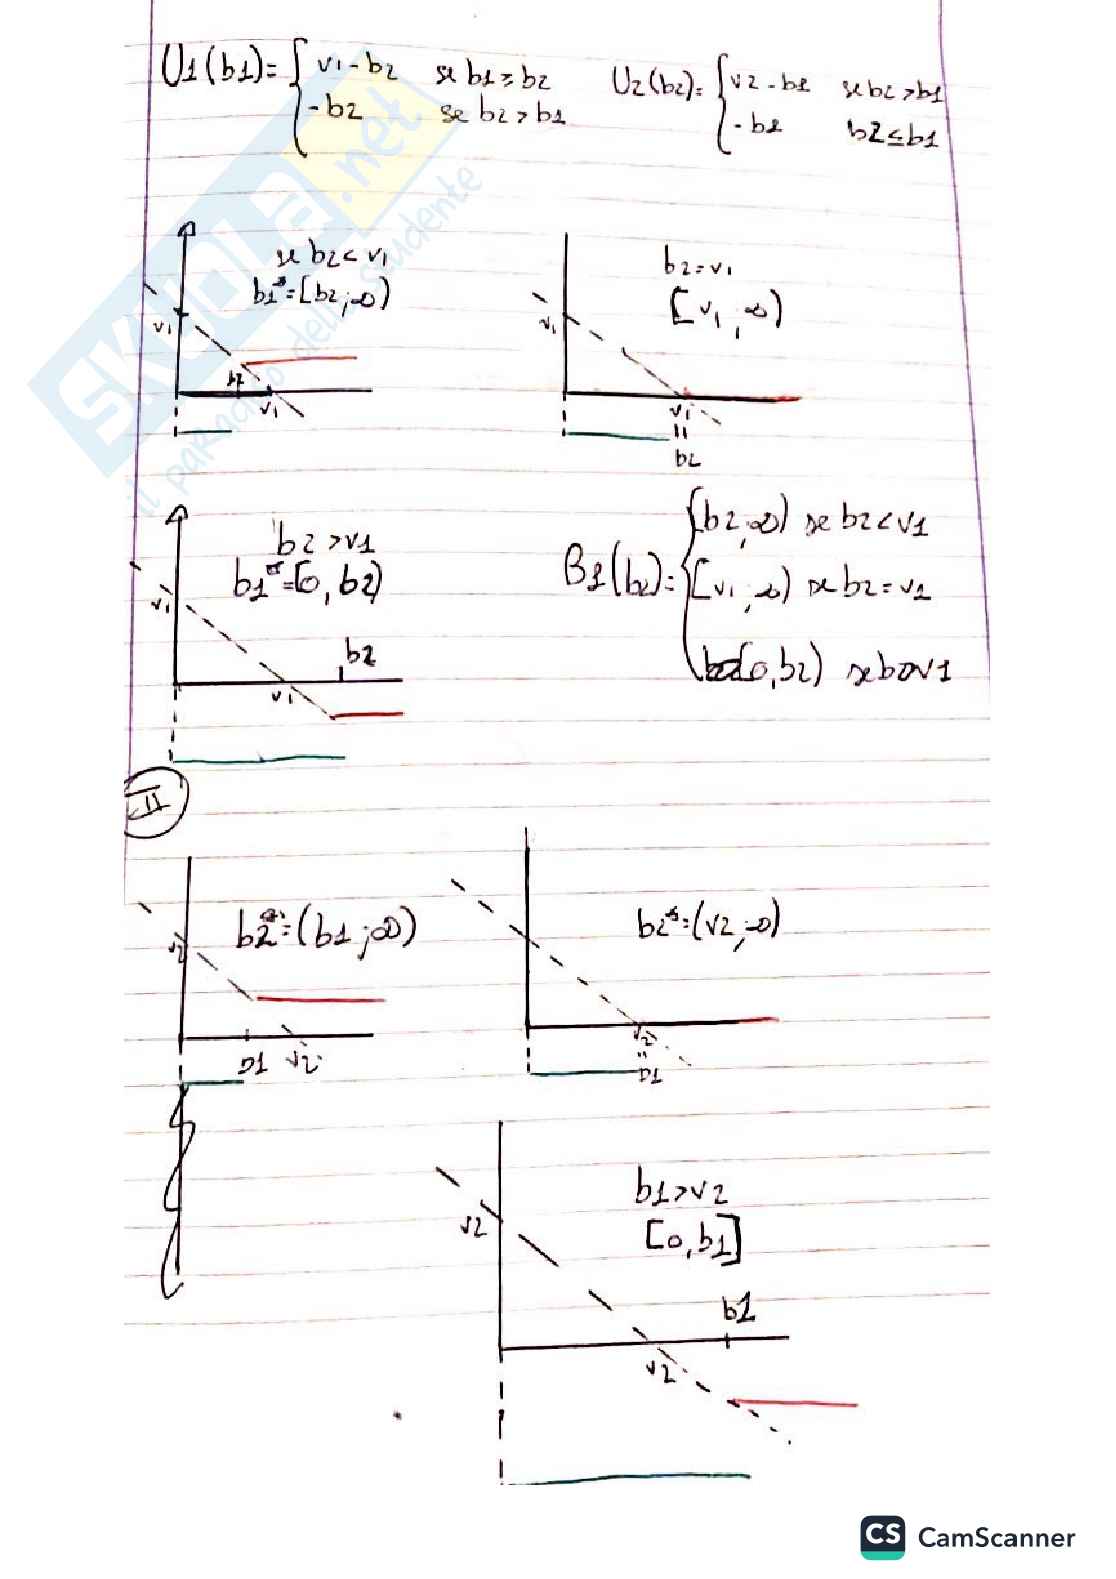 U1(b1)= { v1-b2 se b1≥b2   U2(b2)= { v2-b1 se b2>b1
-b2 se b2>b1   -b1 b2≤b1
SKUOLA.net
il paradiso dello studente
se b2<v1
b1*=[b2;∞)
v1
b2
v1
b2=v1
[v1,∞)
v1
v1
=
b2
b2>v1
b1*=[0,b2)
v1
b2
v1
B1(b2)= { [b2,∞) se b2<v1
[v1;∞) se b2=v1
[0,b2) se b2>v1
II
b2*=(b1;∞)
v2
b1 v2
b2*=(v2,∞)
v2
=
b1
b1>v2
[0,b1]
v2
b1
v2
CS CamScanner